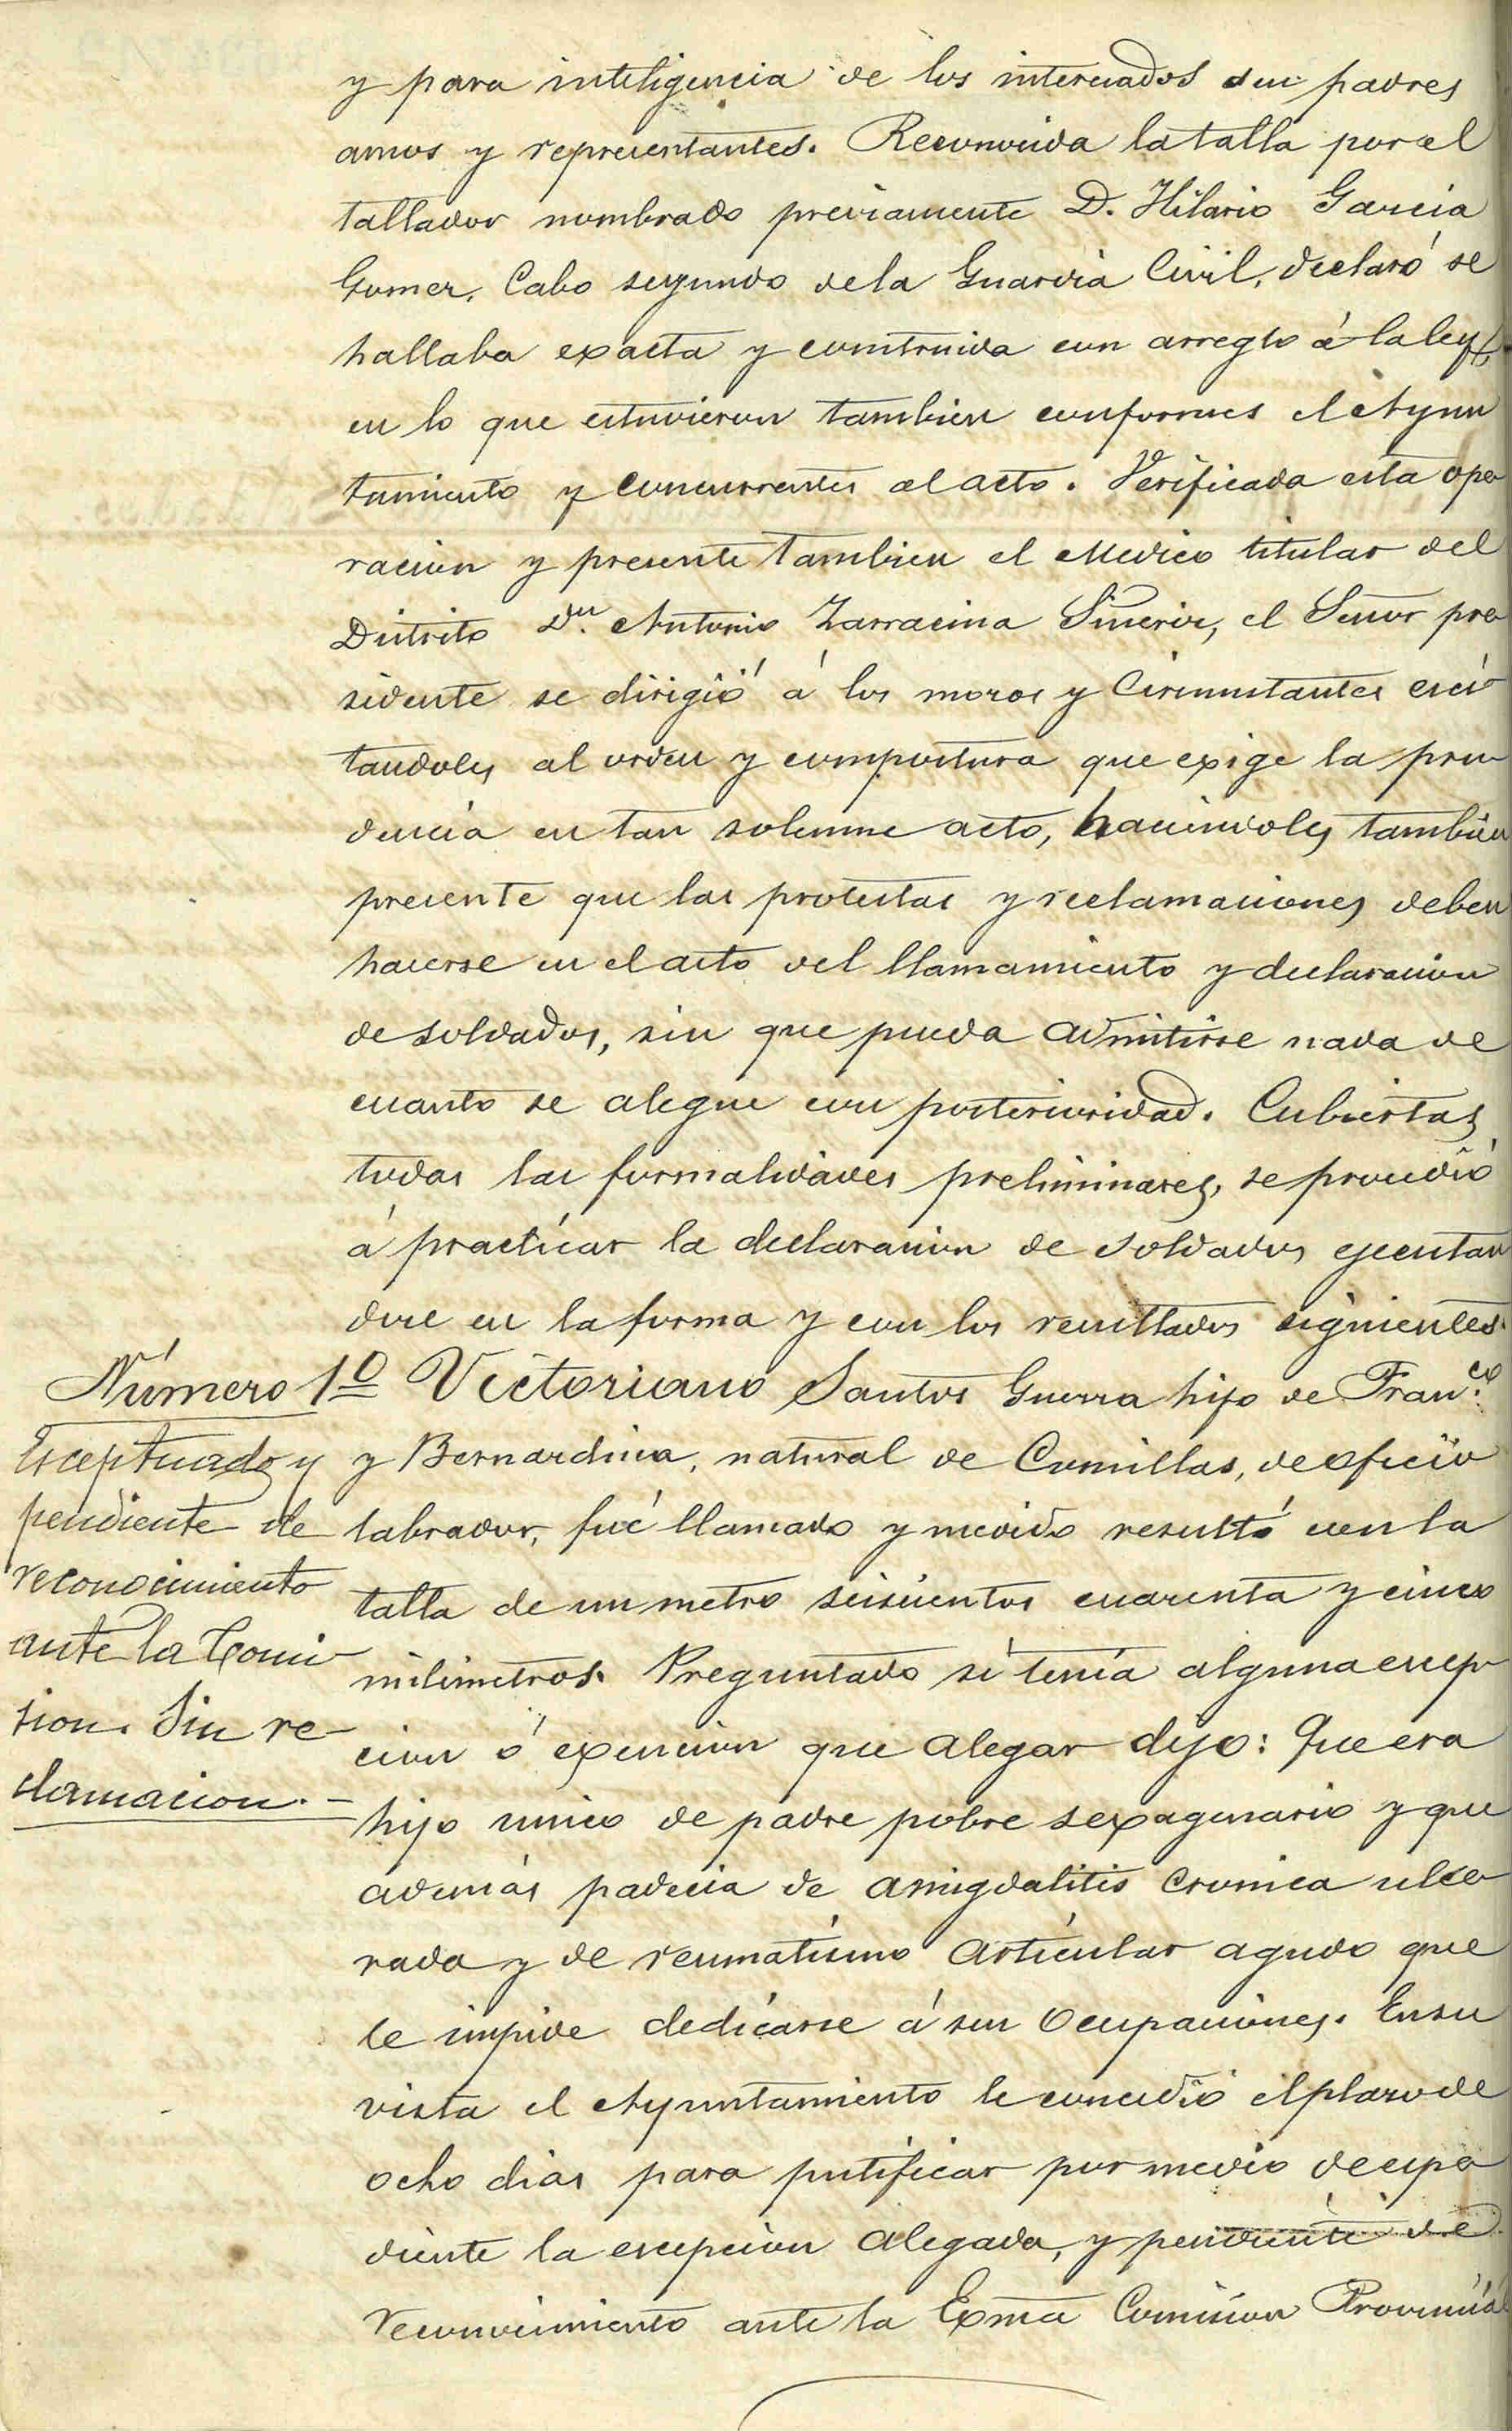 y para inteligencia de los interesados sus padres
amos y representantes. Reconocida la talla por el
tallador nombrado previamente D. Hilario Garcia
Gomez, Cabo segundo de la Guardia Civil, declaró se
hallaba exacta y construida con arreglo á la ley,
en lo que estuvieron tambien conformes el Ayun
tamiento y concurrentes al acto. Verificada esta ope
racion y presente tambien el Medico titular del
Distrito Dn. Antonio Zarracina, el Señor pre
sidente se dirigió á los mozos y Circunstantes esci
tandoles al orden y compostura que exige la pru
dencia en tan solemne acto, haciendoles tambien
presente que las protestas y reclamaciones deben
hacerse en el acto del llamamiento y declaracion
de soldados, sin que pueda admitirse nada de
cuanto se alegue con posterioridad. Cubiertas
todas las formalidades preliminares, se procedió
á practicar la declaracion de soldados ejecutan
dose en la forma y con los resultados siguientes.
Número 1º Victoriano Santos Guerra hijo de Franco.
y Bernardina, natural de Comillas, de oficio
labrador, fué llamado y medido resultó con la
talla de un metro seiscientos cuarenta y cinco
milimetros. Preguntado si tenía alguna escep
cion ó exencion que alegar dijo: Que era
hijo unico de padre pobre sexagenario y que
además padecia de amigdalitis cronica ulce
rada y de reumatismo articular agudo que
le impide dedicarse á sus ocupaciones. En su
vista el Ayuntamiento le concedió el plazo de
ocho dias para justificar por medio de espe
diente la escepcion alegada, y pendiente de
reconocimiento ante la Exma Comision Provincial
Esceptuado y
pendiente de
reconocimiento
ante la Comi
sion. Sin re-
clamacion.-